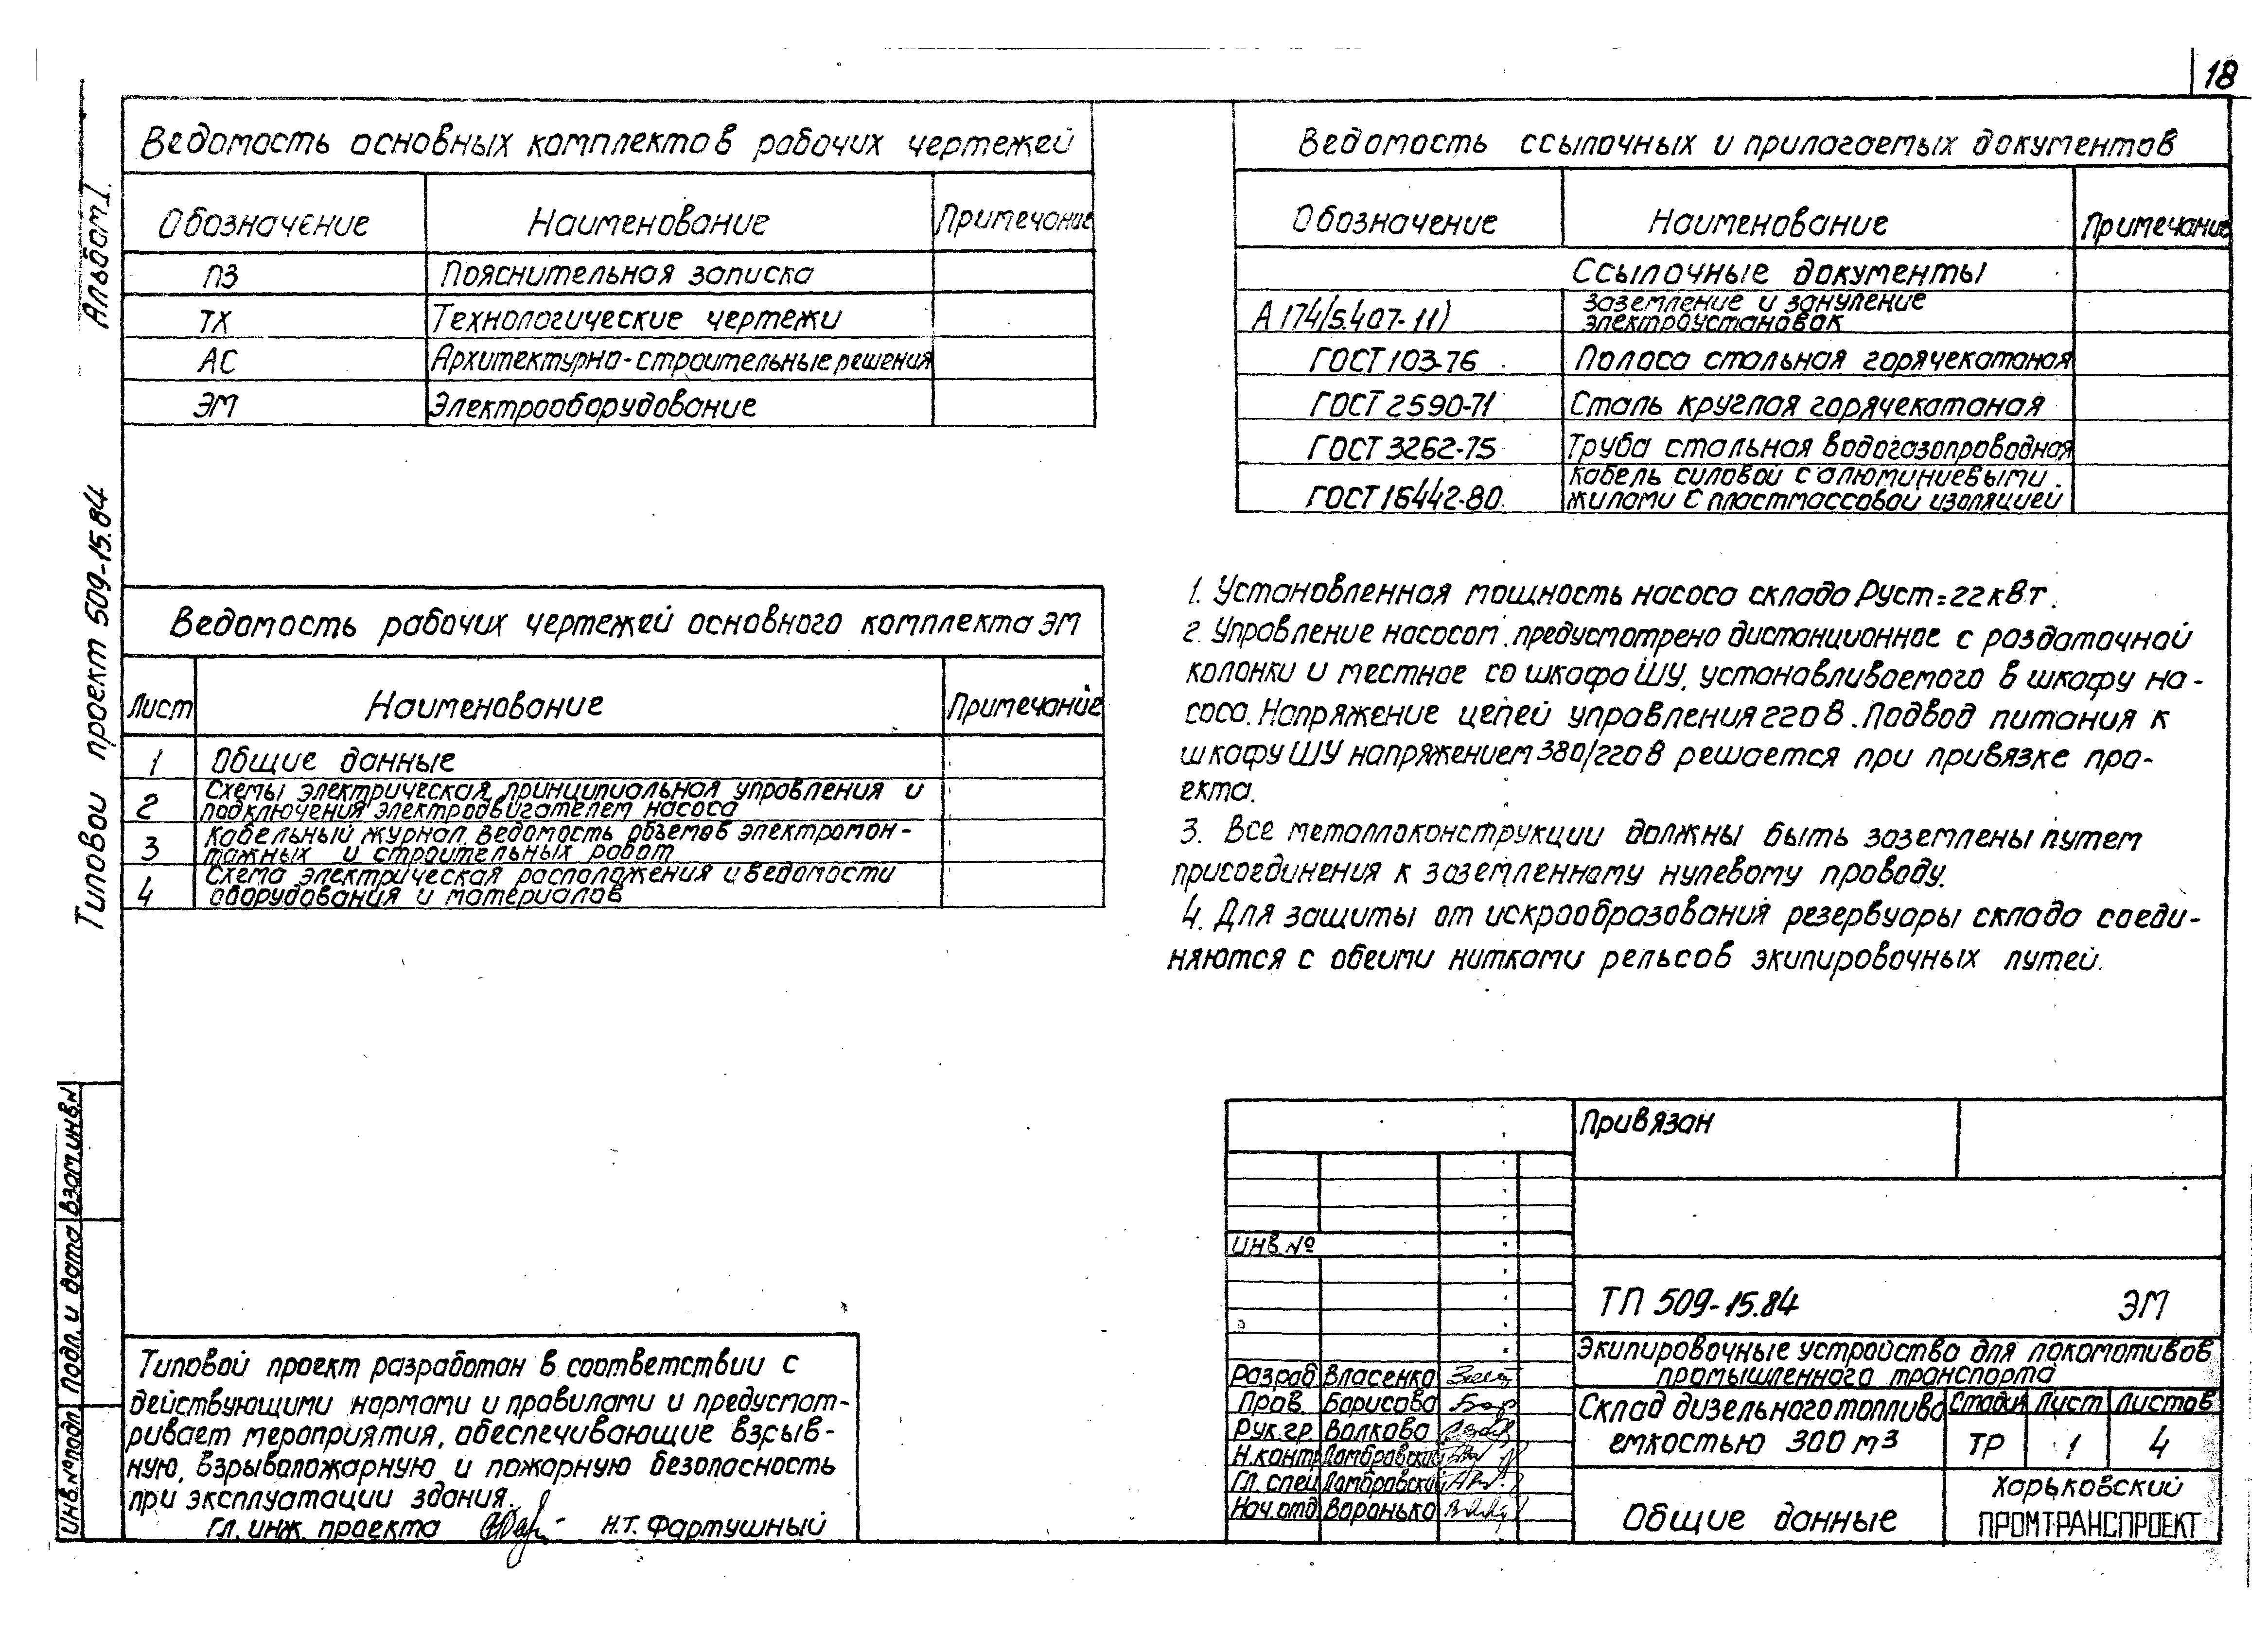 18
Альбом I.
Типовой проект 509-15.84
Ведомость основных комплектов рабочих чертежей
Обозначение Наименование Примечание
ПЗ Пояснительная записка
ТХ Технологические чертежи
АС Архитектурно-строительные решения
ЭМ Электрооборудование
Ведомость рабочих чертежей основного комплекта ЭМ
Лист Наименование Примечание
1 Общие данные
2 Схемы электрическая принципиальная управления и
подключения электродвигателем насоса
3 Кабельный журнал. Ведомость объемов электромон-
тажных и строительных работ
4 Схема электрическая расположения и ведомости
оборудования и материалов
Ведомость ссылочных и прилагаемых документов
Обозначение Наименование Примечание
Ссылочные документы
А174/5.407-11) Заземление и зануление
электроустановок
ГОСТ 103-76 Полоса стальная горячекатаная
ГОСТ 2590-71 Сталь круглая горячекатаная
ГОСТ 3262-75 Труба стальная водогазопроводная
ГОСТ 16442-80 Кабель силовой с алюминиевыми
жилами с пластмассовой изоляцией
1. Установленная мощность насоса склада Руст=22кВт.
2. Управление насосом предусмотрено дистанционное с раздаточной
колонки и местное со шкафа ШУ, устанавливаемого в шкафу на-
соса. Напряжение цепей управления 220В. Подвод питания к
шкафу ШУ напряжением 380/220В решается при привязке про-
екта.
3. Все металлоконструкции должны быть заземлены путем
присоединения к заземленному нулевому проводу.
4. Для защиты от искрообразования резервуары склада соеди-
няются с обеими нитками рельсов экипировочных путей.
Инв.№подл. Подл. и дата Взам.инв.№
Типовой проект разработан в соответствии с
действующими нормами и правилами и предусмат-
ривает мероприятия, обеспечивающие взрыв-
ную, взрывопожарную и пожарную безопасность
при эксплуатации здания.
Гл. инж. проекта Н.Т. Фартушный
Привязан
Инв №
ТП 509-15.84 ЭМ
Экипировочные устройства для локомотивов
промышленного транспорта
Разраб Власенко
Пров. Борисова
Рук.гр Волкова
Н.контр Домбровский
Гл. спец Домбровский
Нач.отд Воронько
Склад дизельного топлива
емкостью 300 м3
Стадия Лист Листов
ТР 1 4
Общие данные
Харьковский
ПРОМТРАНСПРОЕКТ